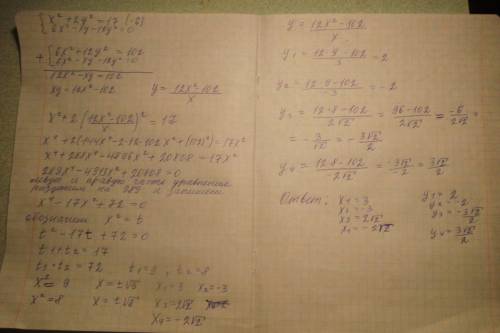 { x² + 2y² = 17 (·6)
6x² - xy - 12y² = 0
+ { 6x² + 12y² = 102
6x² - xy - 12y² = 0
12x² - xy = 102
xy = 12x² - 102 y = (12x² - 102)/x
x² + 2((12x² - 102)/x)² = 17
x⁴ + 2(144x⁴ - 2·12·102x² + (102)²) = 17x²
x⁴ + 288x⁴ - 4896x² + 20808 = 17x²
289x⁴ - 4913x² + 20808 = 0
левую и правую часть уравнения
разделим на 289 и запишем
x⁴ - 17x² + 72 = 0
обозначим x² = t
t² - 17t + 72 = 0
t₁ + t₂ = 17
t₁ · t₂ = 72 t₁ = 9, t₂ = 8
x² = 9 x = ±√9 x₁ = 3 x₂ = -3
x² = 8 x = ±√8 x₃ = 2√2
x₄ = -2√2
y = (12x² - 102)/x
y₁ = (12·9 - 102)/3 = 2
y₂ = (12·9 - 102)/-3 = -2
y₃ = (12·8 - 102)/2√2 = (96 - 102)/2√2 = -6/2√2 =
= -3/√2 = -3√2/2
y₄ = (12·8 - 102)/-2√2 = -3√2/-2 = 3√2/2
Ответ: x₁ = 3 y₁ = 2
x₂ = -3 y₂ = -2
x₃ = 2√2 y₃ = -3√2/2
x₄ = -2√2 y₄ = 3√2/2